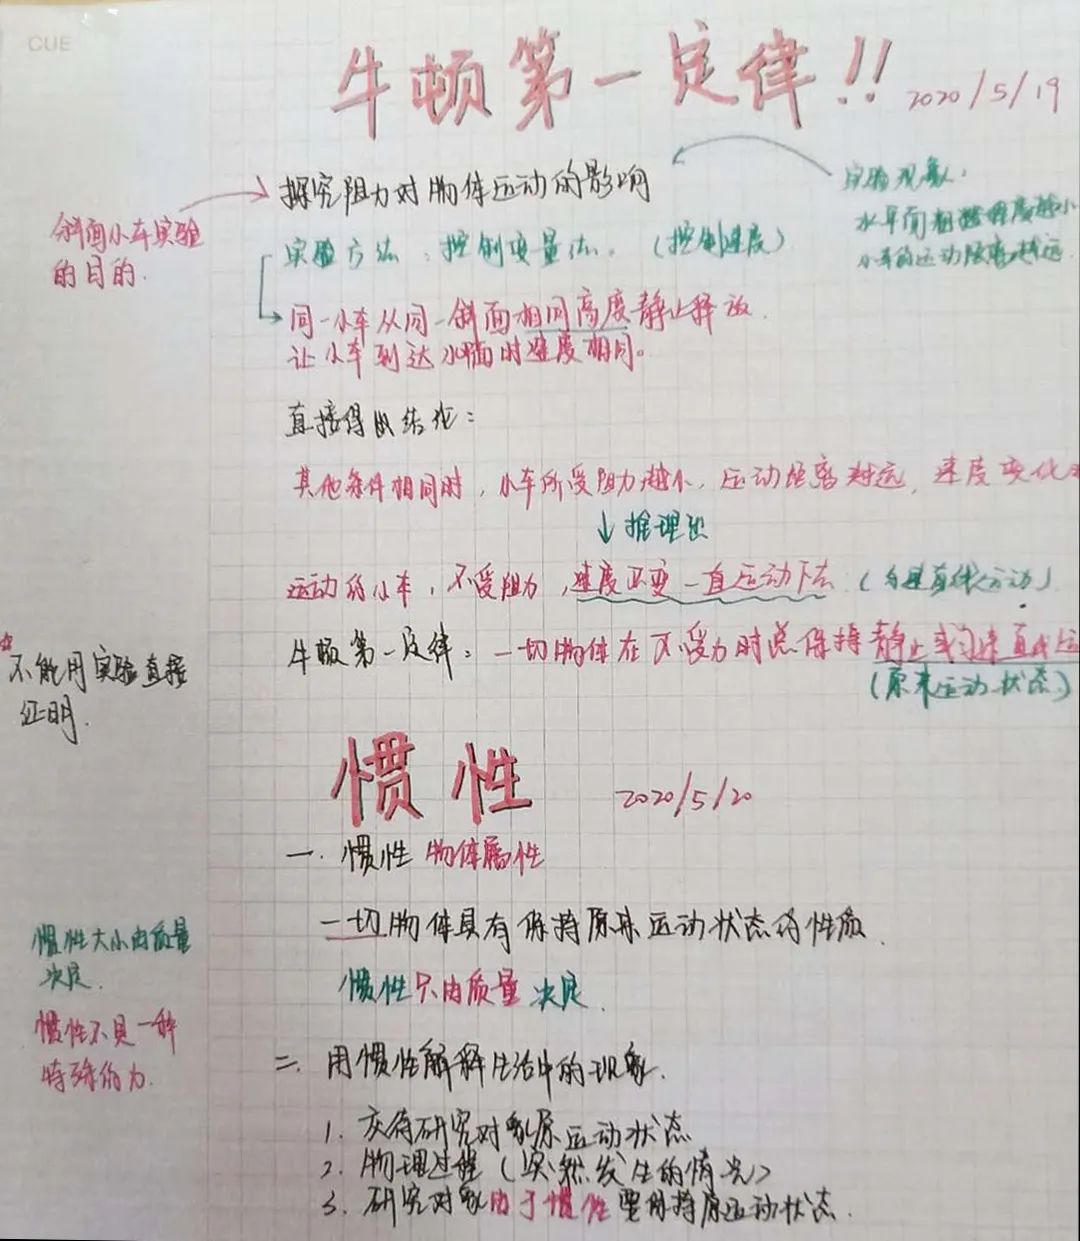 CUE
牛顿第一定律!!
2020/5/19
探究阻力对物体运动的影响
斜面小车实验
的目的.
实验现象:
水平面粗糙程度越小
小车的运动距离越远.
实验方法:控制变量法.(控制速度)
同一小车从同一斜面相同高度静止释放.
让小车到达水平面时速度相同。
直接得出结论:
其他条件相同时,小车所受阻力越小,运动距离越远,速度变化
↓推理出
运动的小车,不受阻力,速度不变一直运动下去.(匀速直线运动)
牛顿第一定律:一切物体在不受力时总保持静止或匀速直线运
(原来运动状态)
不能用实验直接
证明.
惯性
2020/5/20
一.惯性 物体属性
一切物体具有保持原来运动状态的性质.
惯性只由质量决定.
惯性大小由质量
决定.
惯性不是一种
特殊的力.
二.用惯性解释生活中的现象.
1.交待研究对象原运动状态
2.物理过程(突然发生的情况)
3.研究对象由于惯性要保持原运动状态.